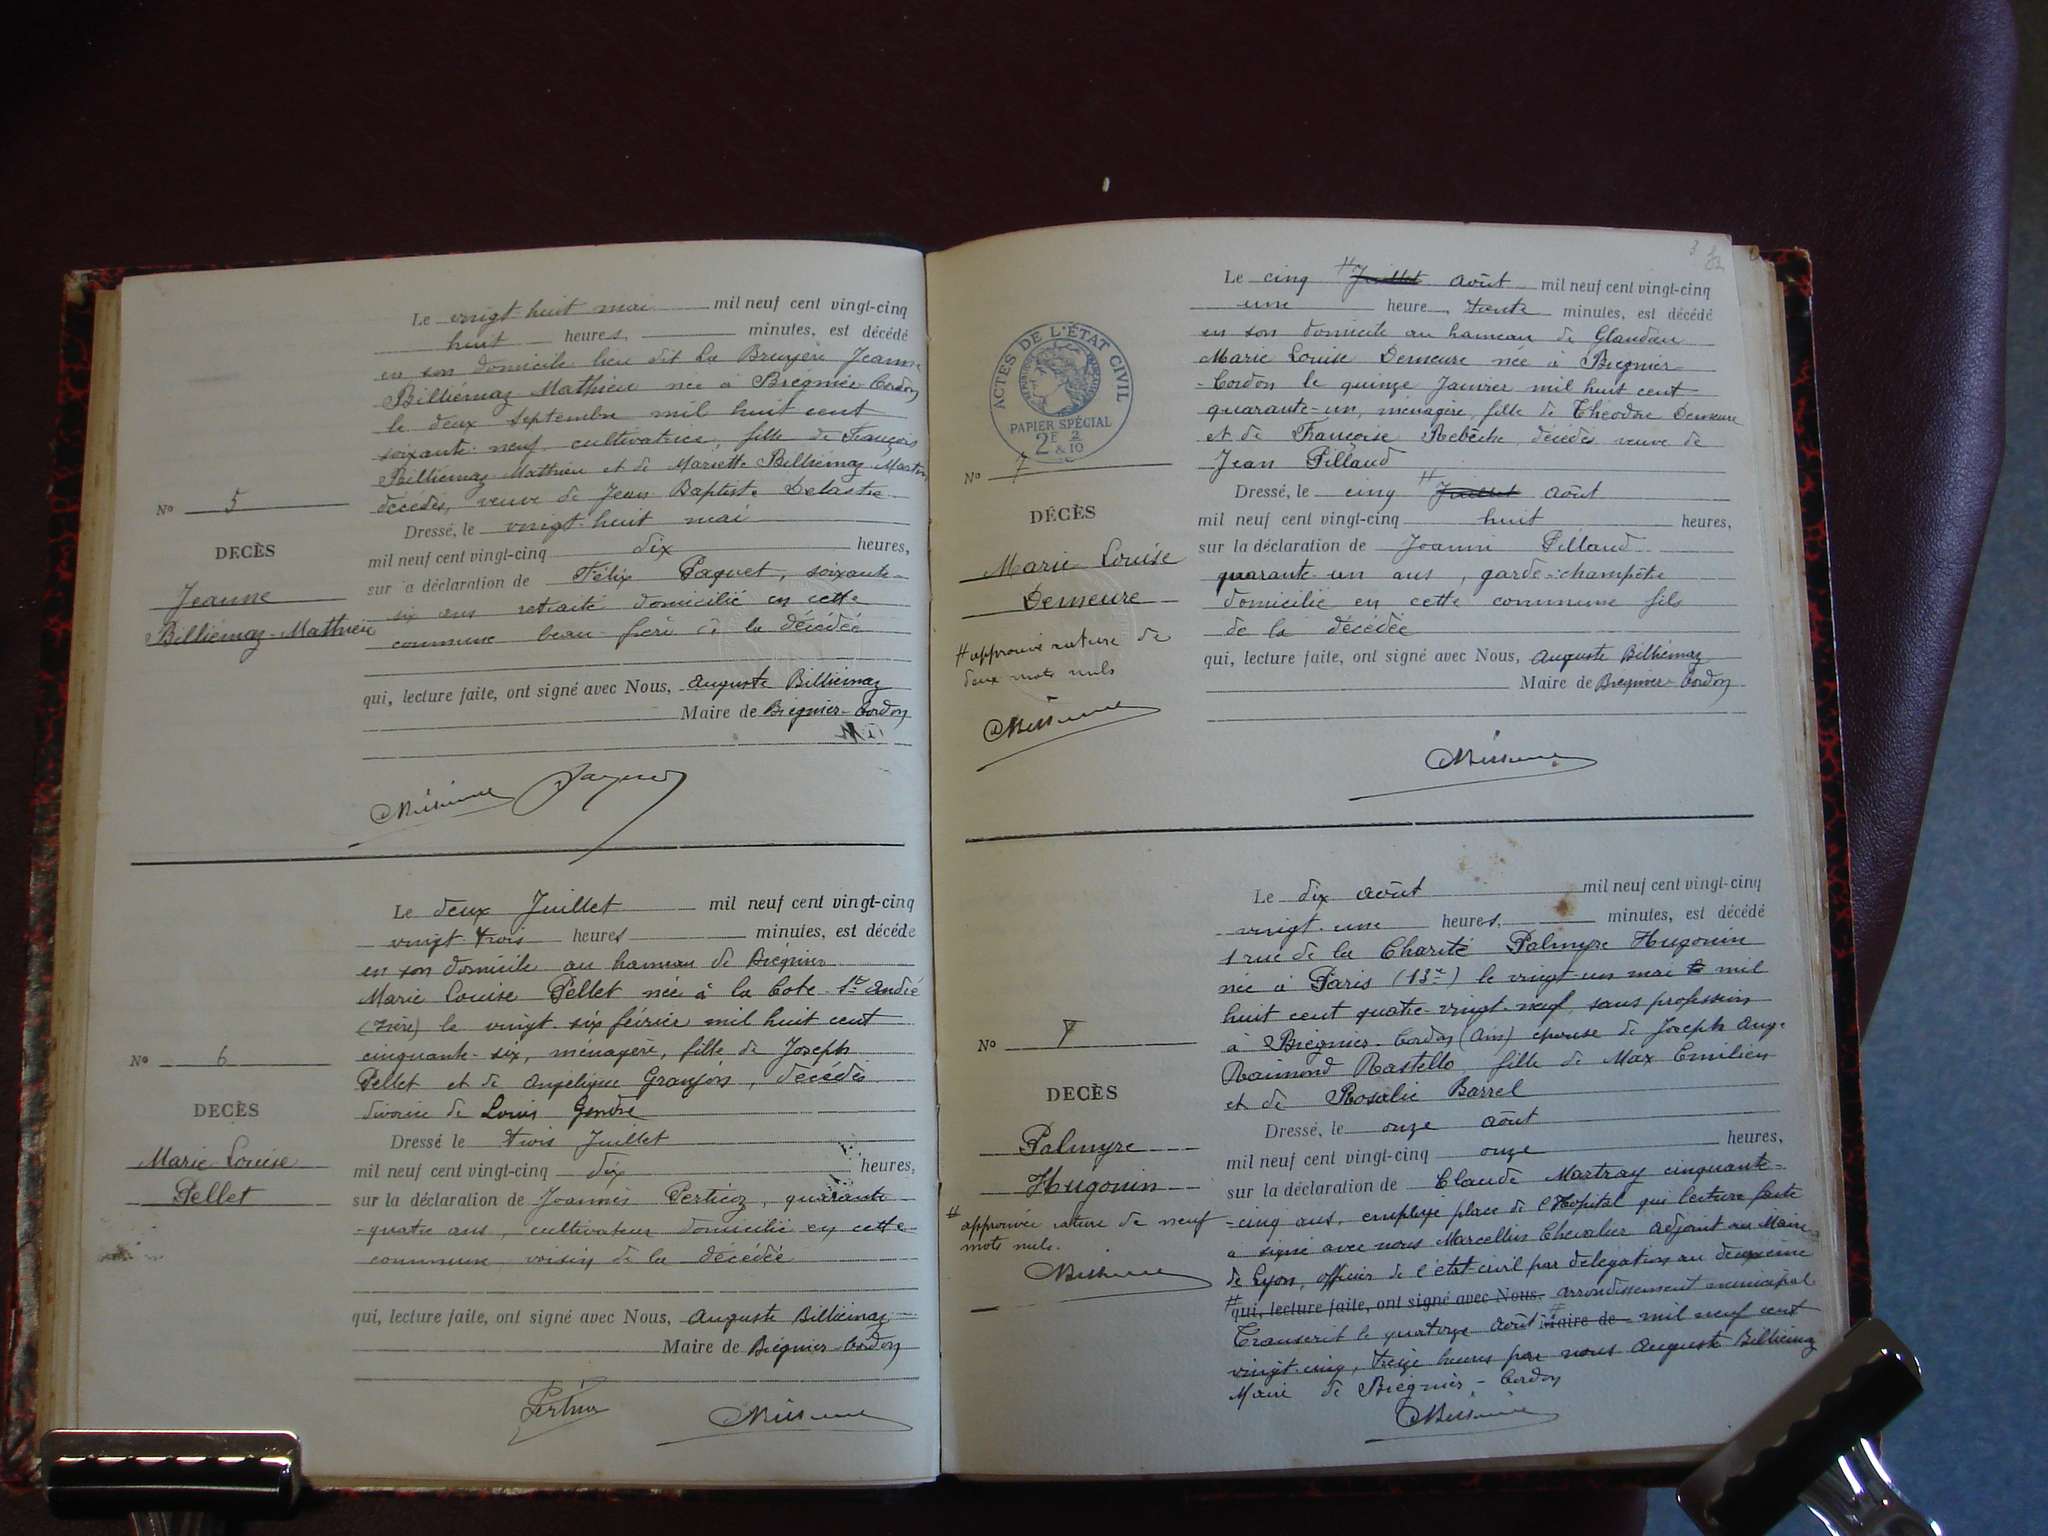 Le vingt-huit mai mil neuf cent vingt-cinq
huit heures minutes, est décédé
en son domicile lieu dit La Bruyère Jeanne
Billiémaz-Mathieu née à Brégnier-Cordon
le deux Septembre mil huit cent
soixante-neuf, cultivatrice, fille de François
Billiémaz-Mathieu et de Mariette Billiémaz-Martin
décédés, veuve de Jean Baptiste Delastre
No 5
DECÈS
Jeanne
Billiémaz-Mathieu
Dressé, le vingt-huit mai
mil neuf cent vingt-cinq dix heures,
sur a déclaration de Félix Paquet, soixante-
six ans retraité domicilié en cette
commune beau-frère à la décédée
qui, lecture faite, ont signé avec Nous, Auguste Billiémaz
Maire de Brégnier-Cordon
Le deux Juillet mil neuf cent vingt-cinq
vingt-trois heures minutes, est décédé
en son domicile au hameau de Brégnier
Marie Louise Pellet née à la Cote St André
(Isère) le vingt-six février mil huit cent
cinquante-six, ménagère, fille de Joseph
Pellet et de Angélique Granjon, décédés
divorcée de Louis Gendre
No 6
DECÈS
Marie Louise
Pellet
Dressé le trois Juillet
mil neuf cent vingt-cinq dix heures,
sur la déclaration de Joannès Perticoz, quarante
-quatre ans, cultivateur domicilié en cette
commune voisin de la décédée
qui, lecture faite, ont signé avec Nous, Auguste Billiémaz
Maire de Brégnier-Cordon
Le cinq # Juillet août mil neuf cent vingt-cinq
une heure trente minutes, est décédé
en son domicile au hameau de Glandieu
Marie Louise Demeure née à Brégnier
-Cordon le quinze Janvier mil huit cent
quarante-un, ménagère, fille de Théodore Demeure
et de Françoise Rebêche, décédés veuve de
Jean Pilland
ACTES DE L'ÉTAT CIVIL
RÉPUBLIQUE FRANÇAISE
PAPIER SPÉCIAL
2F 2/10
&
No 7
DÉCÈS
Marie Louise
Demeure
# approuvé rature de
deux mots nuls
Dressé, le cinq # Juillet août
mil neuf cent vingt-cinq huit heures,
sur la déclaration de Joanni Pilland
quarante-un ans, garde-champêtre
domicilié en cette commune fils
de la décédée
qui, lecture faite, ont signé avec Nous, Auguste Billiémaz
Maire de Brégnier-Cordon
Le dix août mil neuf cent vingt-cinq
vingt-une heures, minutes, est décédé
1 rue de la Charité Palmyre Hugonin
née à Paris (13e) le vingt-un mai mil
huit cent quatre-vingt-neuf, sans profession
à Brégnier-Cordon (Ain) épouse de Joseph Ange
Raimond Rastello, fille de Max Emilien
et de Rosalie Barrel
No 7
DECÈS
Palmyre
Hugonin
# approuvée rature de neuf
mots nuls.
Dressé, le onze août
mil neuf cent vingt-cinq onze heures,
sur la déclaration de Claude Martray cinquante-
-cinq ans, employé place de l'Hopital qui lecture faite
a signé avec nous Marcellin Chevalier adjoint au Maire
de Lyon, officier de l'état-civil par délégation au deuxième
# qui, lecture faite, ont signé avec Nous, arrondissement municipal
Transcrit le quatorze août # Maire de mil neuf cent
vingt-cinq, treize heures par nous Auguste Billiémaz
Maire de Brégnier-Cordon